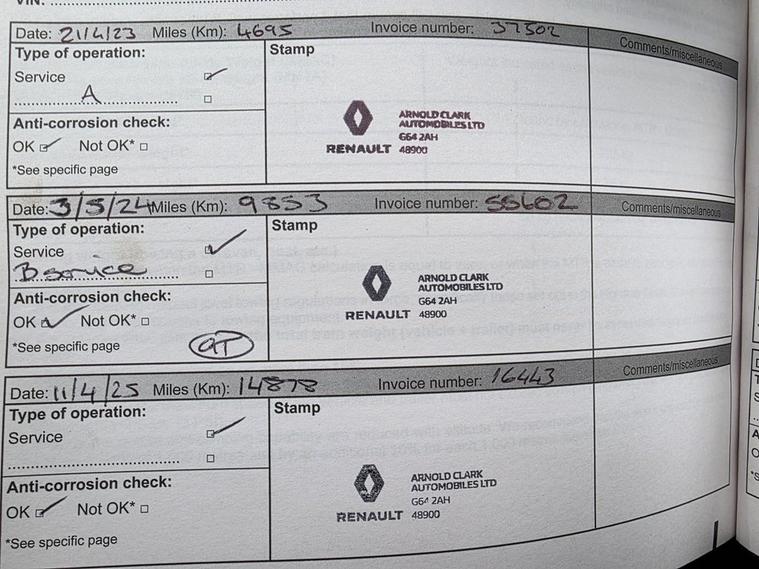 VIN: ........
Date: 21/4/23 Miles (Km): 4695 Invoice number: 37502 Comments/miscellaneous
Type of operation: Stamp
Service
A
Anti-corrosion check:
OK Not OK*
*See specific page
ARNOLD CLARK
AUTOMOBILES LTD
G64 2AH
RENAULT 48900
Date: 3/5/24 Miles (Km): 9853 Invoice number: 55602 Comments/miscellaneous
Type of operation: Stamp
Service
B service
Anti-corrosion check:
OK Not OK*
*See specific page
ARNOLD CLARK
AUTOMOBILES LTD
G64 2AH
RENAULT 48900
Date: 11/4/25 Miles (Km): 14878 Invoice number: 16443 Comments/miscellaneous
Type of operation: Stamp
Service
Anti-corrosion check:
OK Not OK*
*See specific page
ARNOLD CLARK
AUTOMOBILES LTD
G64 2AH
RENAULT 48900